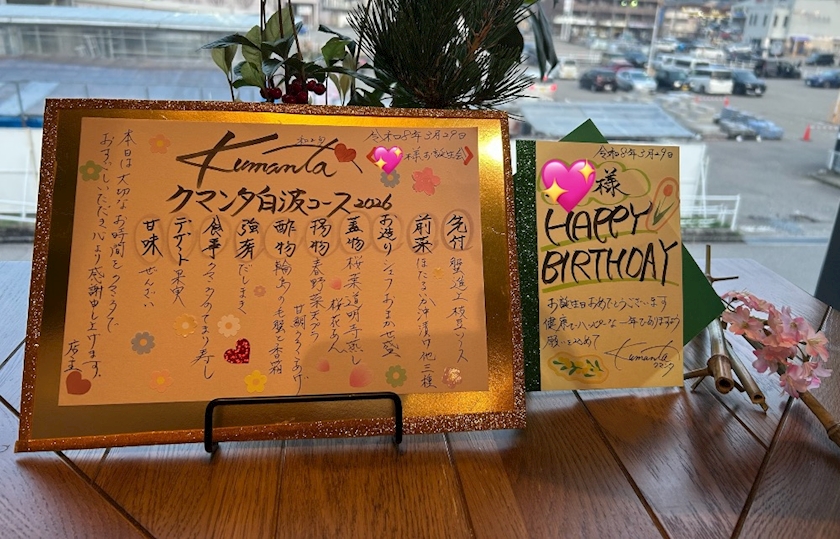 令和8年3月29日
和より
Kumanta
様お誕生会
クマンタ白波コース2026
先付 蟹の進上 枝豆ソース
前菜 ほたるいか沖漬け他三種
お造り シェフおまかせ盛
蓋物 桜葉道明寺蒸し
桜花あん
揚物 春野菜天ぷら
甘鯛うろこあげ
酢物 輪島の毛蟹と香箱
強肴 だしまき
食事 クマンタのてまり寿し
デザート 果実
甘味 ぜんざい
本日は大切なお時間をクマンタで
おすごしいただき心より感謝申し上げます。
店主
令和8年3月29日
様
HAPPY
BIRTHDAY
お誕生日おめでとうございます
健康でハッピーな一年でありますよう
願いを込めて
Kumanta
クマンタ